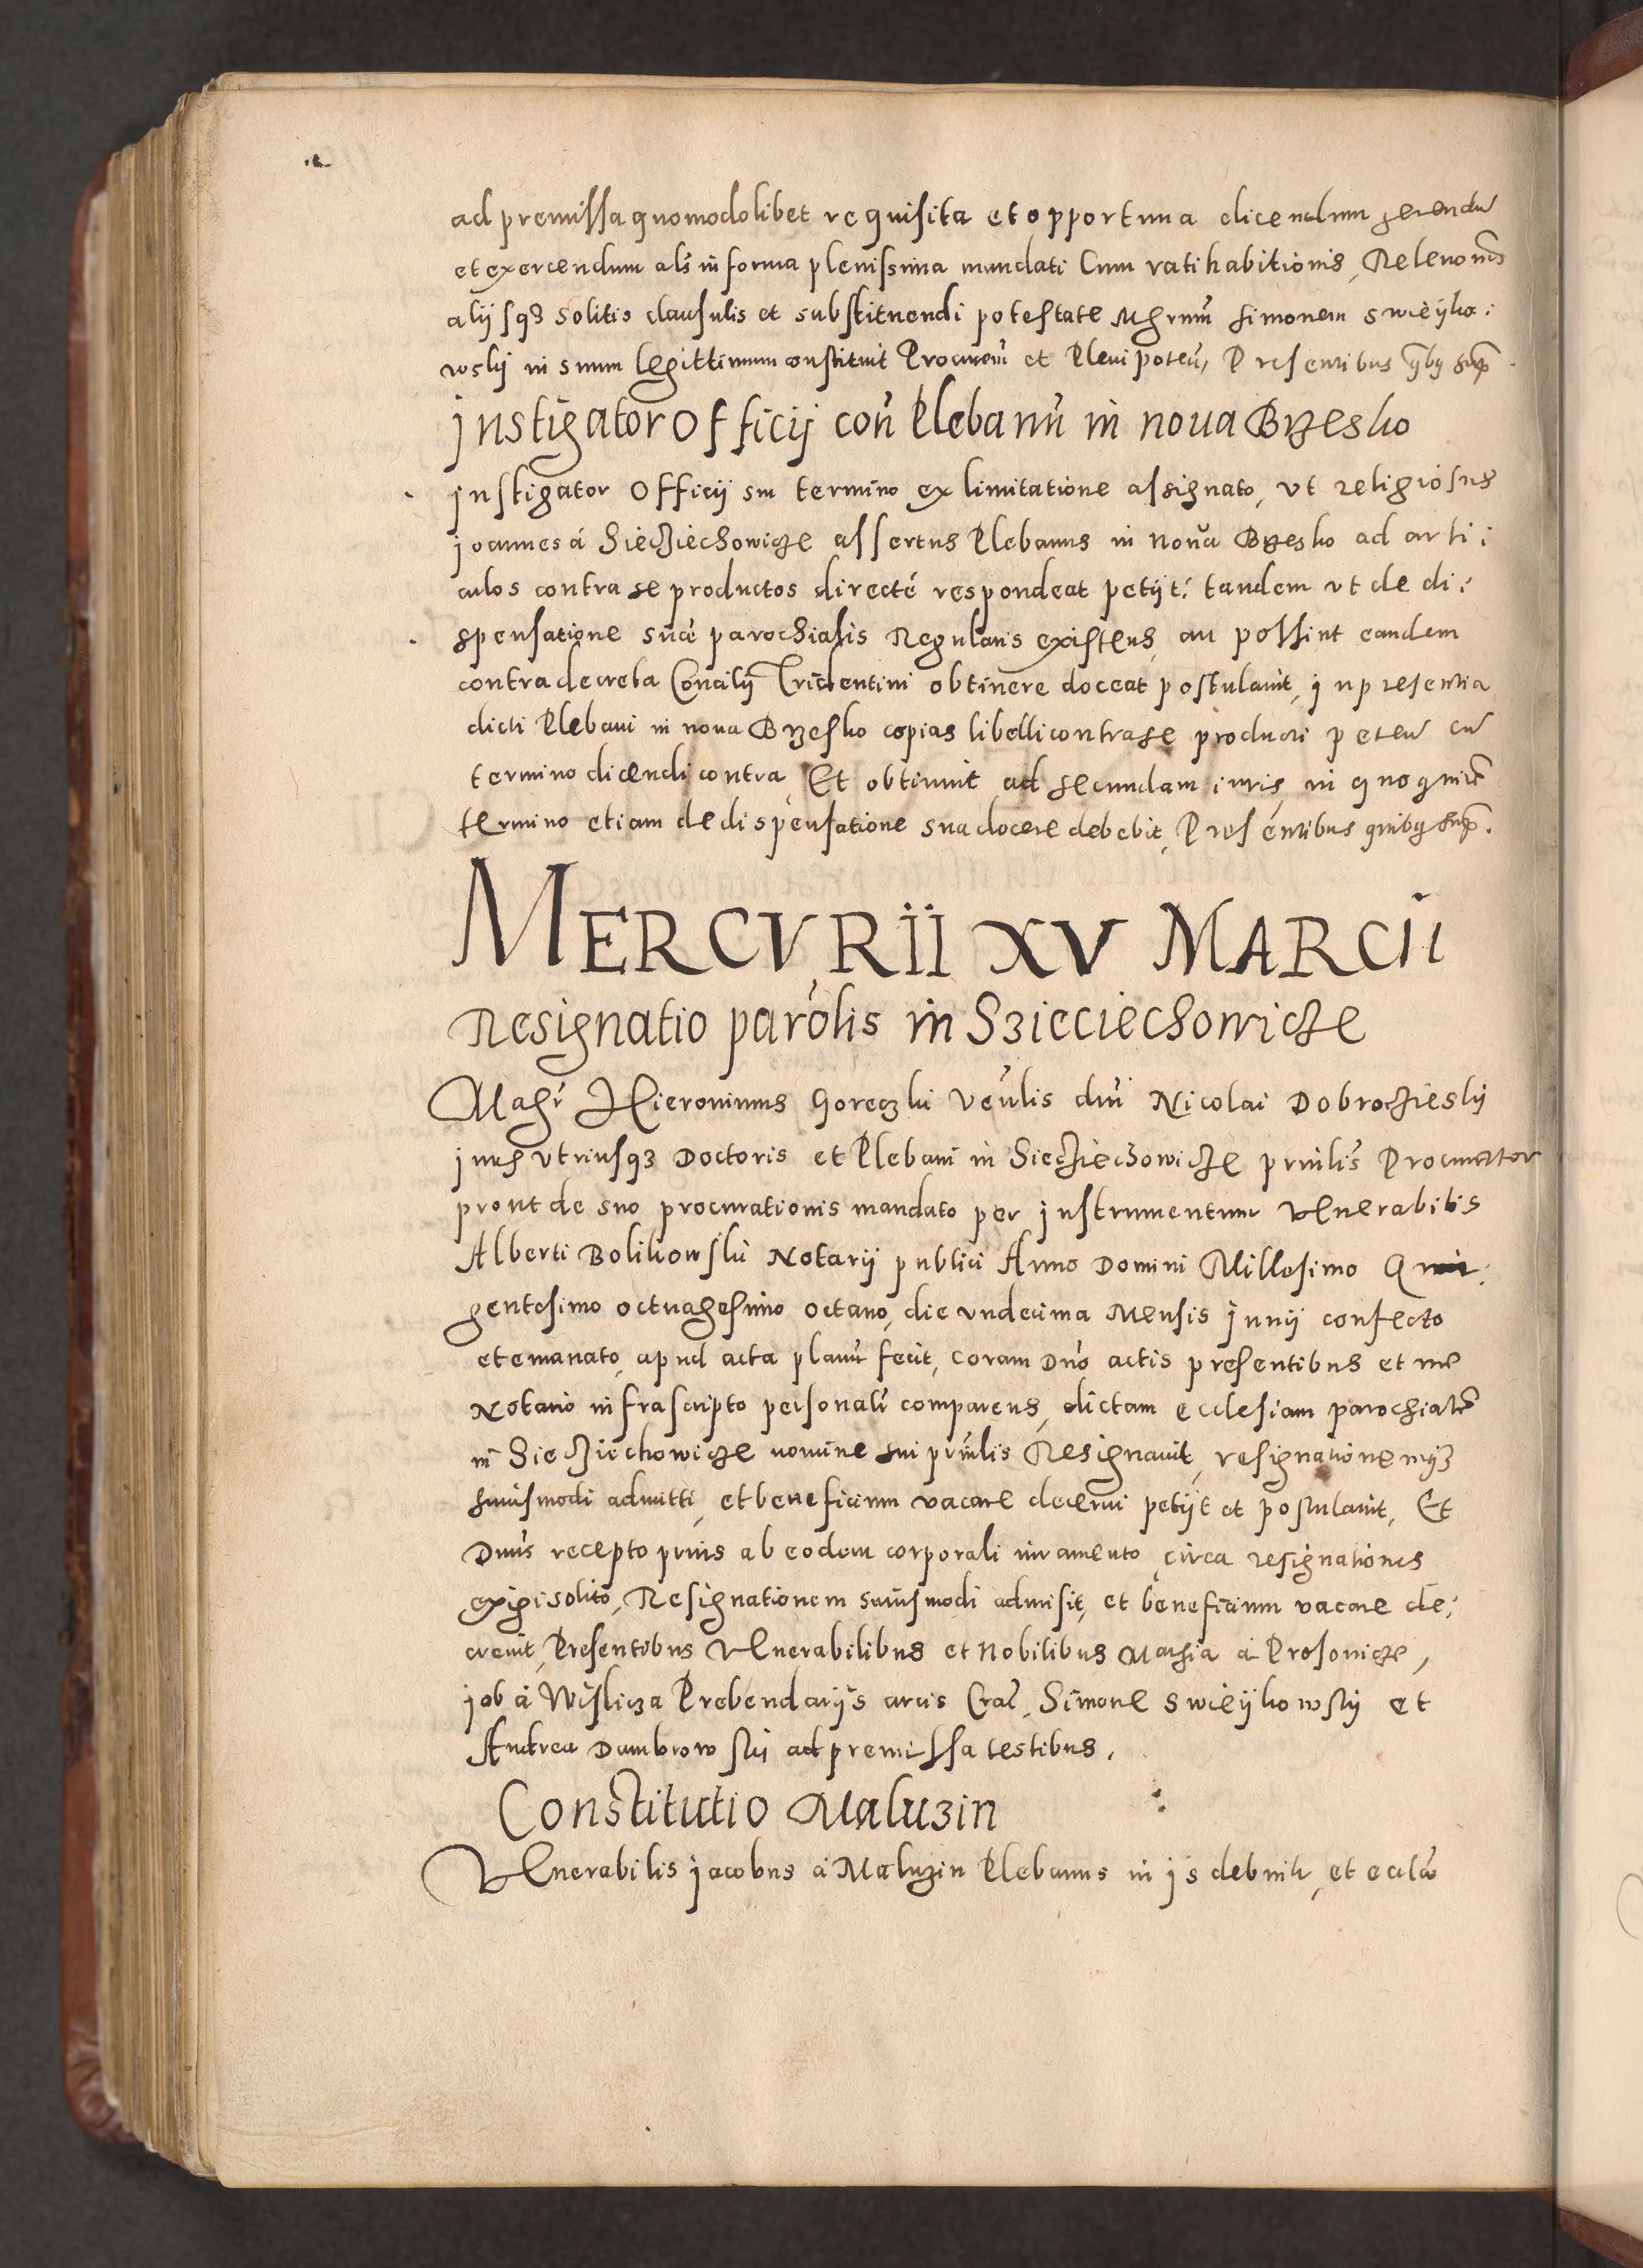 ad premissa quomodolibet requisita et opportuna dicendum gerendū
et exercendum als in forma plenissima mandati Cum ratihabitionis, Releuonis
alijsqz solitis clausulis et substituendi potestate Mgrum simonem swieyko:
wskij in suum legittimum constituit Procurem et Plenipoten, Presentibus qbq sup.
Instigator Officij con Plebanū in noua Brzesko
Instigator Officij in termino ex limitatione assignato, vt religiosus
Joannes á Siecziechowicze assertus Plebanus in noua Brzesko ad arti:
culos contra se productos directé respondeat petijt: tandem vt de di:
spensatione sua parochialis Regularis existens, an possint eandem
contra decreta Concilij Tridentini obtinere doceat postulauit, in presentia
dicti Plebani in noua Brzesko copias libelli contra se producti peteñ cū
termino dicendi contra, Et obtinuit ad secundam iuris, in quoquidē
termino etiam de dispensatione sua docere debebit, Presentibus quibq sup.
MERCVRII XV MARCII
Resignatio parolis in Szieciechowicze
Magr Hieronimus Goreczki Venlis dni Nicolai Dobrocziesky
iuris vtriusqz Doctoris et Plebani in Siecziechowicze prinlis Procurator
prout de suo procurationis mandato per instrumentum Venerabilis
Alberti Bolikowski Notarij publici Anno Domini Millesimo Quin:
gentesimo octuagesimo octauo, die vndecima Mensis Junij confecto
et emanato, apud acta planū fecit, coram Dno actis presentibus et me
Notario infrascripto personalr comparens, dictam ecclesiam parochialē
in Siecziechowicze nomine sui prinlis Resignauit, resignationemqz
huiusmodi admitti, et beneficium vacare decerni petijt et postulauit, Et
Dnus recepto prius ab eodem corporali iuramento, circa resignationes
exigi solito, Resignationem huiusmodi admisit, et beneficium vacare de:
creuit, Presentibus Venerabilibus et Nobilibus Mathia á Prosouicze,
Job á Wislicza Prebendarijs arcis Crac, Simone swieykowskij et
Andrea Dambrowskij ad premissa testibus.
Constitutio Maluzin
Venerabilis Jacobus á Maluzin Plebanus in Jsdebnik, et